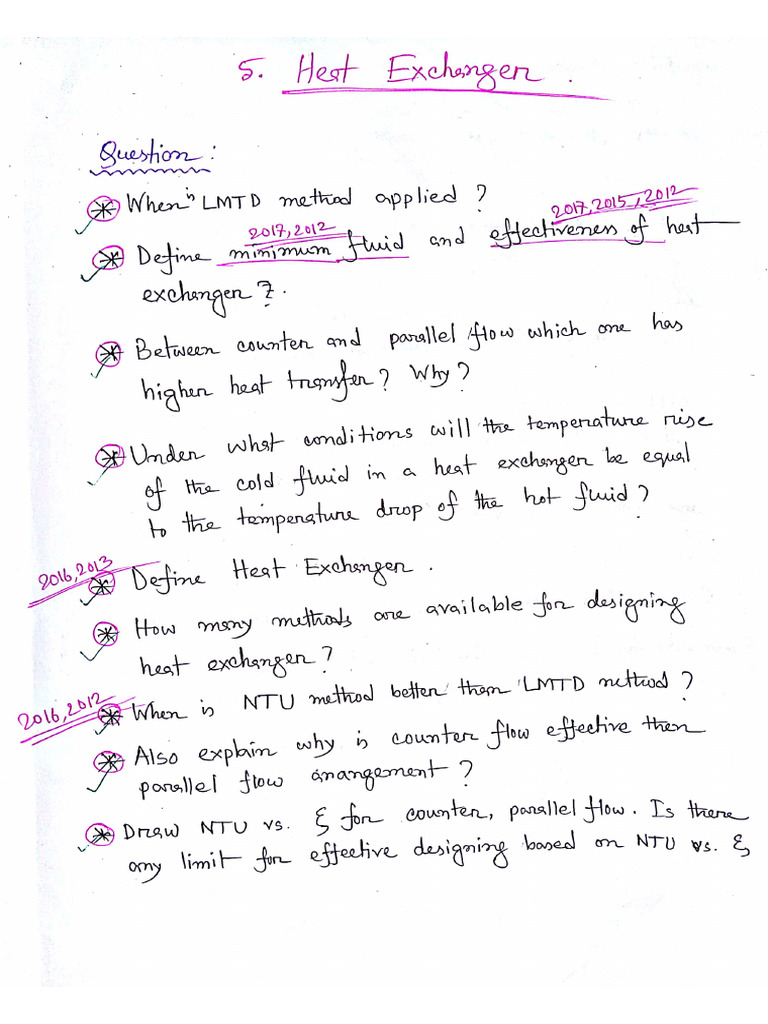 5. Heat Exchanger.
Question:
When is LMTD method applied?
2017, 2015, 2012
2017, 2012
Define minimum fluid and effectiveness of heat
exchanger?.
Between counter and parallel flow which one has
higher heat transfer? Why?
Under what conditions will the temperature rise
of the cold fluid in a heat exchanger be equal
to the temperature drop of the hot fluid?
2016, 2013
Define Heat Exchanger.
How many methods are available for designing
heat exchanger?
2016, 2012
When is NTU method better them LMTD method?
Also explain why is counter flow effective then
parallel flow arrangement?
Draw NTU vs. ξ for counter, parallel flow. Is there
any limit for effective designing based on NTU vs. ξ